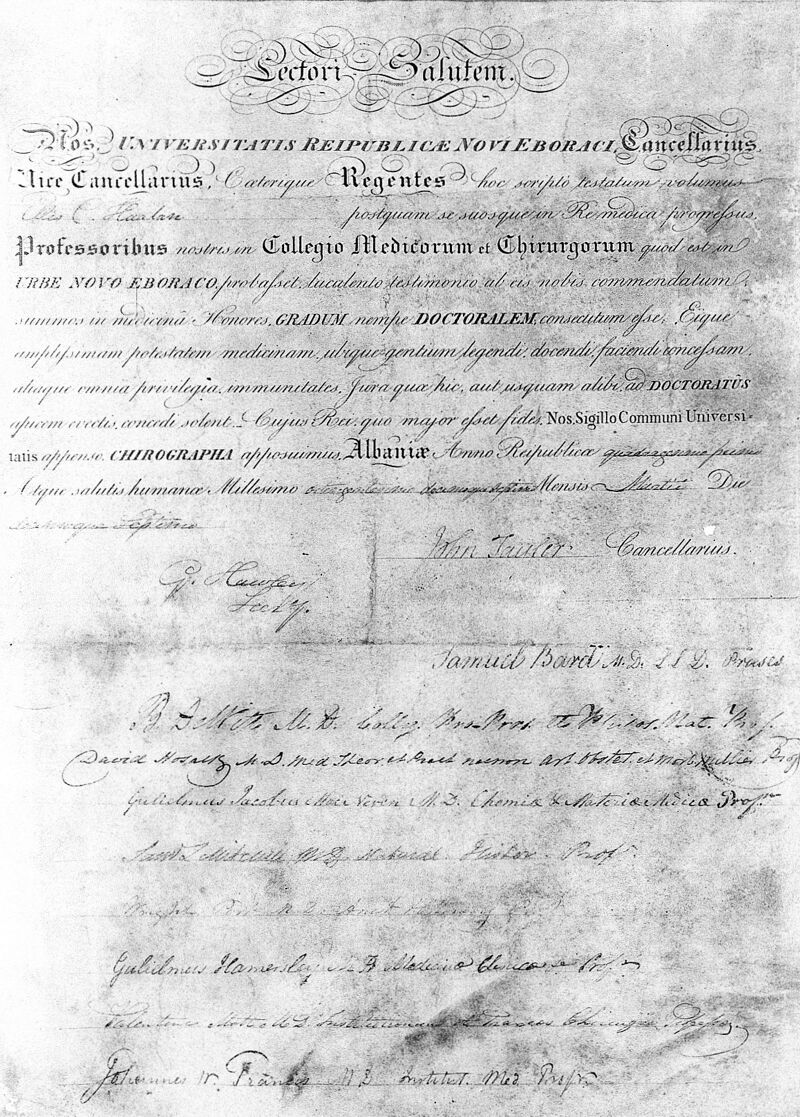 Lectori Salutem.
Nos, UNIVERSITATIS REIPUBLICÆ NOVI EBORACI, Cancellarius,
Vice Cancellarius, Cæterique Regentes hoc scripto testatum volumus
Harlan postquam se suosque in Re medica progressus,
Professoribus nostris in Collegio Medicorum et Chirurgorum quod est in
URBE NOVO EBORACO, probasset, luculento testimonio ab eis nobis commendatum
summos in medicinâ Honores, GRADUM nempe DOCTORALEM, consecutum esse; Eique
amplissimam potestatem medicinam, ubique gentium, legendi, docendi, faciendi concessam,
aliaque omnia privilegia, immunitates, Jura quæ hic, aut usquam alibi, ad DOCTORATÛS
apicem evectis, concedi solent. Cujus Rei, quo major esset fides, Nos, Sigillo Communi Universi-
tatis appenso, CHIROGRAPHA apposuimus, Albaniæ Anno Reipublicæ quadragesimo primo
Atque salutis humanæ Millesimo octingentesimo decimoque septimo Mensis Martii Die
Septimo
John Tayler Cancellarius.
G. Hawley
Secry.
Samuel Bard M.D. LLD. Præses
B. DeWitt M.D. Nat. Prof.
David Hosack M.D. Med Theor et Prac necnon art Obstet. et Morb. mulier Prof
Gulielmus Jacobus Mac Neven M.D. Chemiæ & Materiæ Medicæ Profr.
Saml L Mitchill M.D. Natural Histor. Prof.
Wright Post M.D. Anat
Gulielmus Hamersley M D Medicinæ Clinicæ Prof.
Valentine Mott M.D. Chirurgiæ Professor
Johannes W. Francis MD Institut. Med Profr.